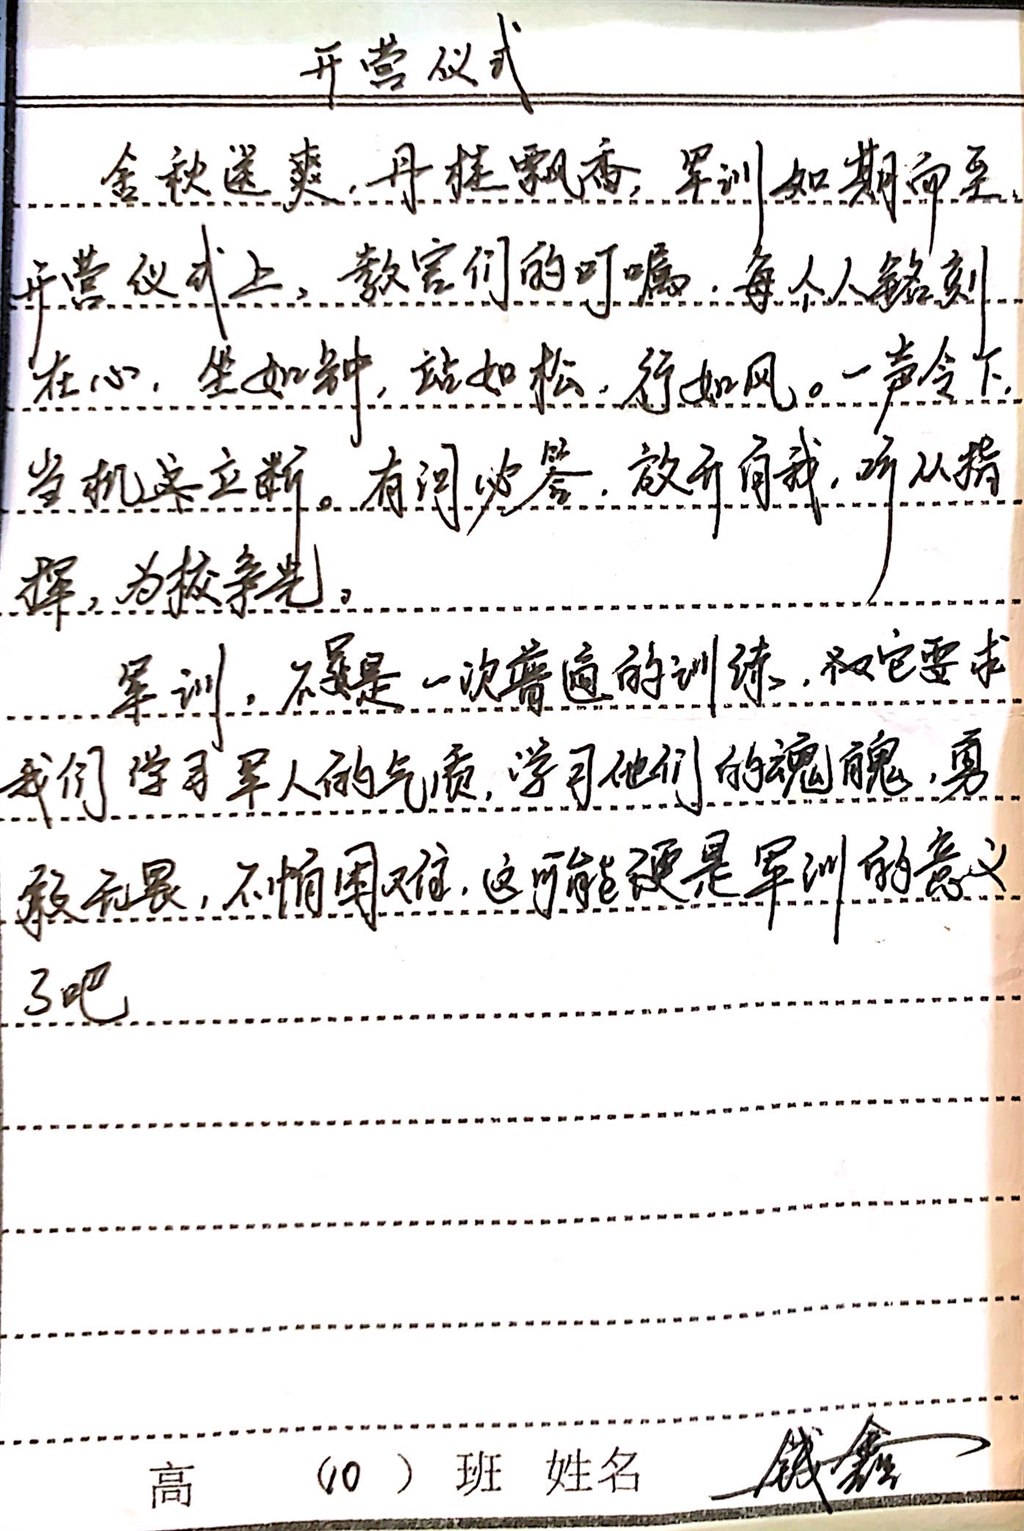 开营仪式
金秋送爽，丹桂飘香，军训如期而至。
开营仪式上，教官们的叮嘱，每个人铭刻
在心，坐如钟，站如松，行如风。一声令下，
当机立断。有问必答，放开自我，听从指
挥，为校争光。
军训，不是一次普通的训练，不仅它要求
我们学习军人的气质，学习他们的魂魄，勇
敢无畏，不怕困难，这可能便是军训的意义
了吧
高 （10）班 姓名 钱鑫